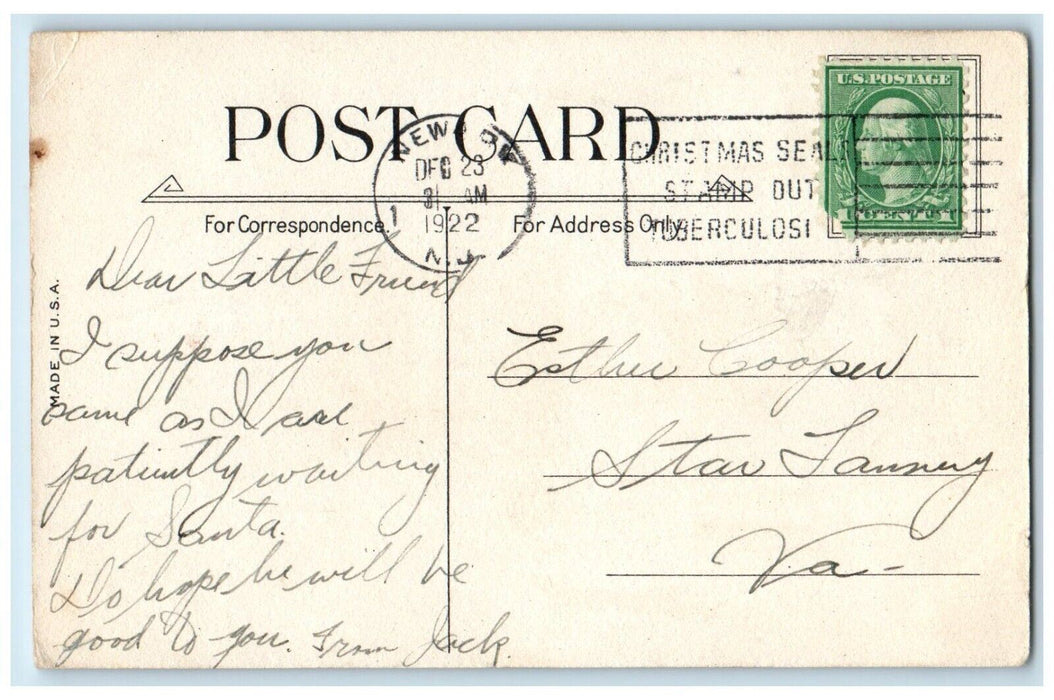 POST CARD
NEWARK
DEC 23
31 AM
1922
N.J.
1
CHRISTMAS SEALS
STAMP OUT
TUBERCULOSI
U.S. POSTAGE
For Correspondence.
For Address Only.
MADE IN U.S.A.
Dear Little Friend
I suppose you
same as I are
patiently waiting
for Santa.
Do hope he will be
good to you. From Jack.
Esther Cooper
Star Tannery
Va-